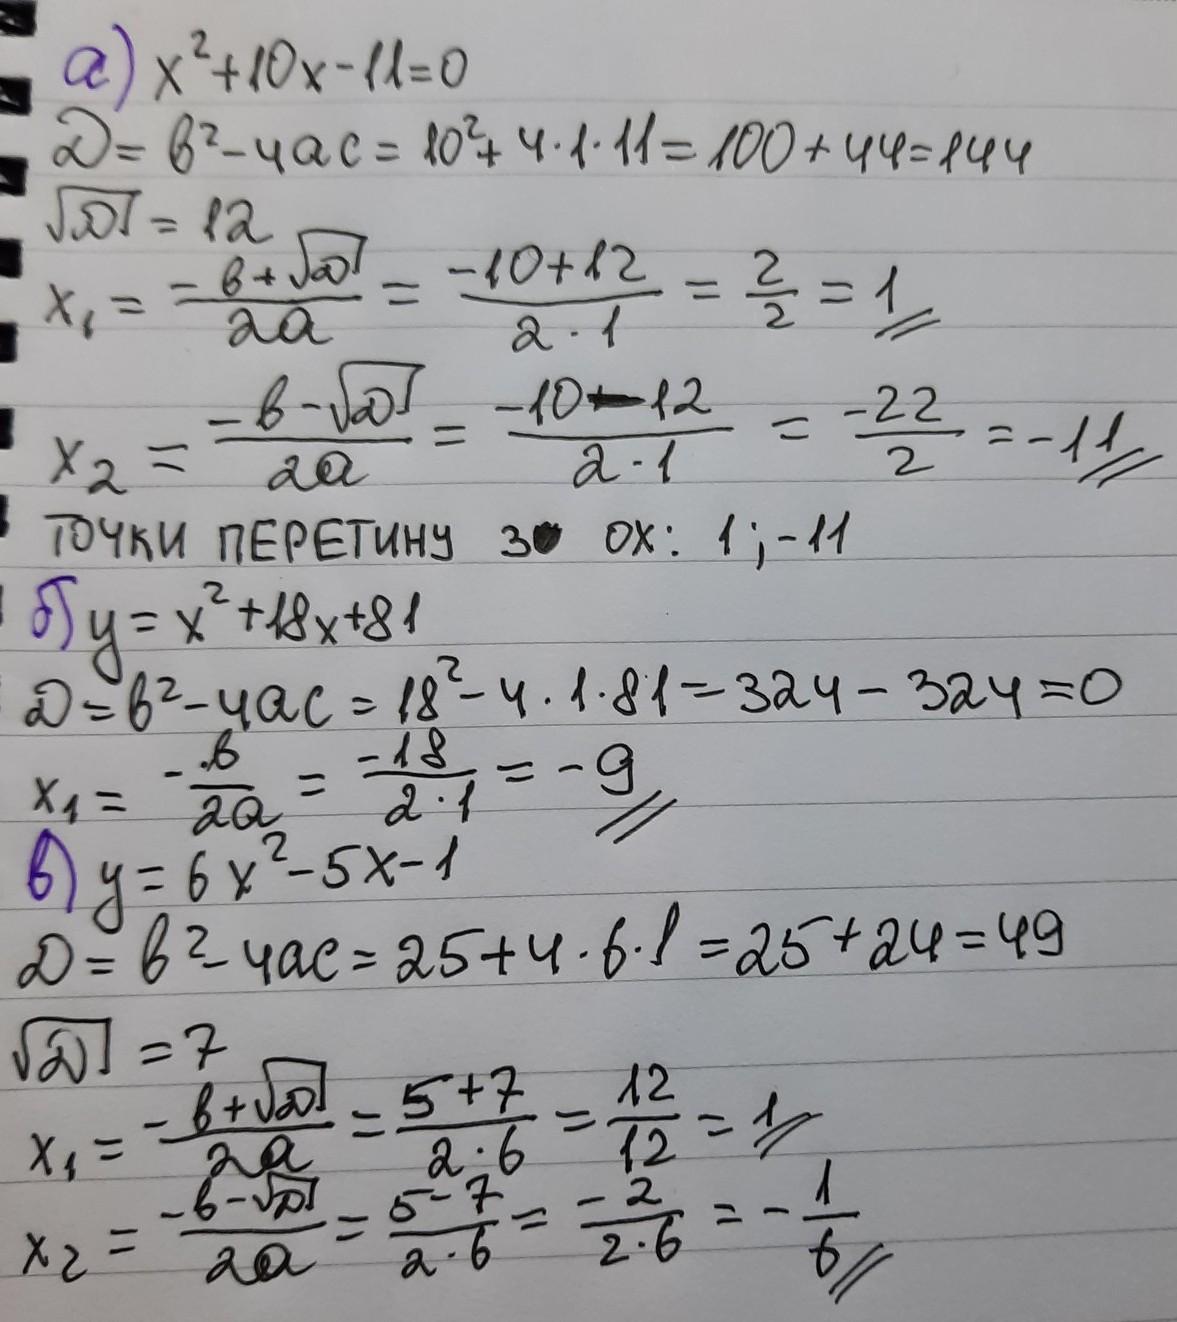 а) x²+10x-11=0
Д=в²-4ас=10²+4·1·11=100+44=144
√Д=12
x₁=(-в+√Д)/2а=(-10+12)/(2·1)=2/2=1
x₂=(-в-√Д)/2а=(-10-12)/(2·1)=-22/2=-11
ТОЧКИ ПЕРЕТИНУ З ОХ: 1;-11
б) y=x²+18x+81
Д=в²-4ас=18²-4·1·81=324-324=0
x₁=-в/2а=-18/(2·1)=-9
в) y=6x²-5x-1
Д=в²-4ас=25+4·6·1=25+24=49
√Д=7
x₁=(-в+√Д)/2а=(5+7)/(2·6)=12/12=1
x₂=(-в-√Д)/2а=(5-7)/(2·6)=-2/(2·6)=-1/6